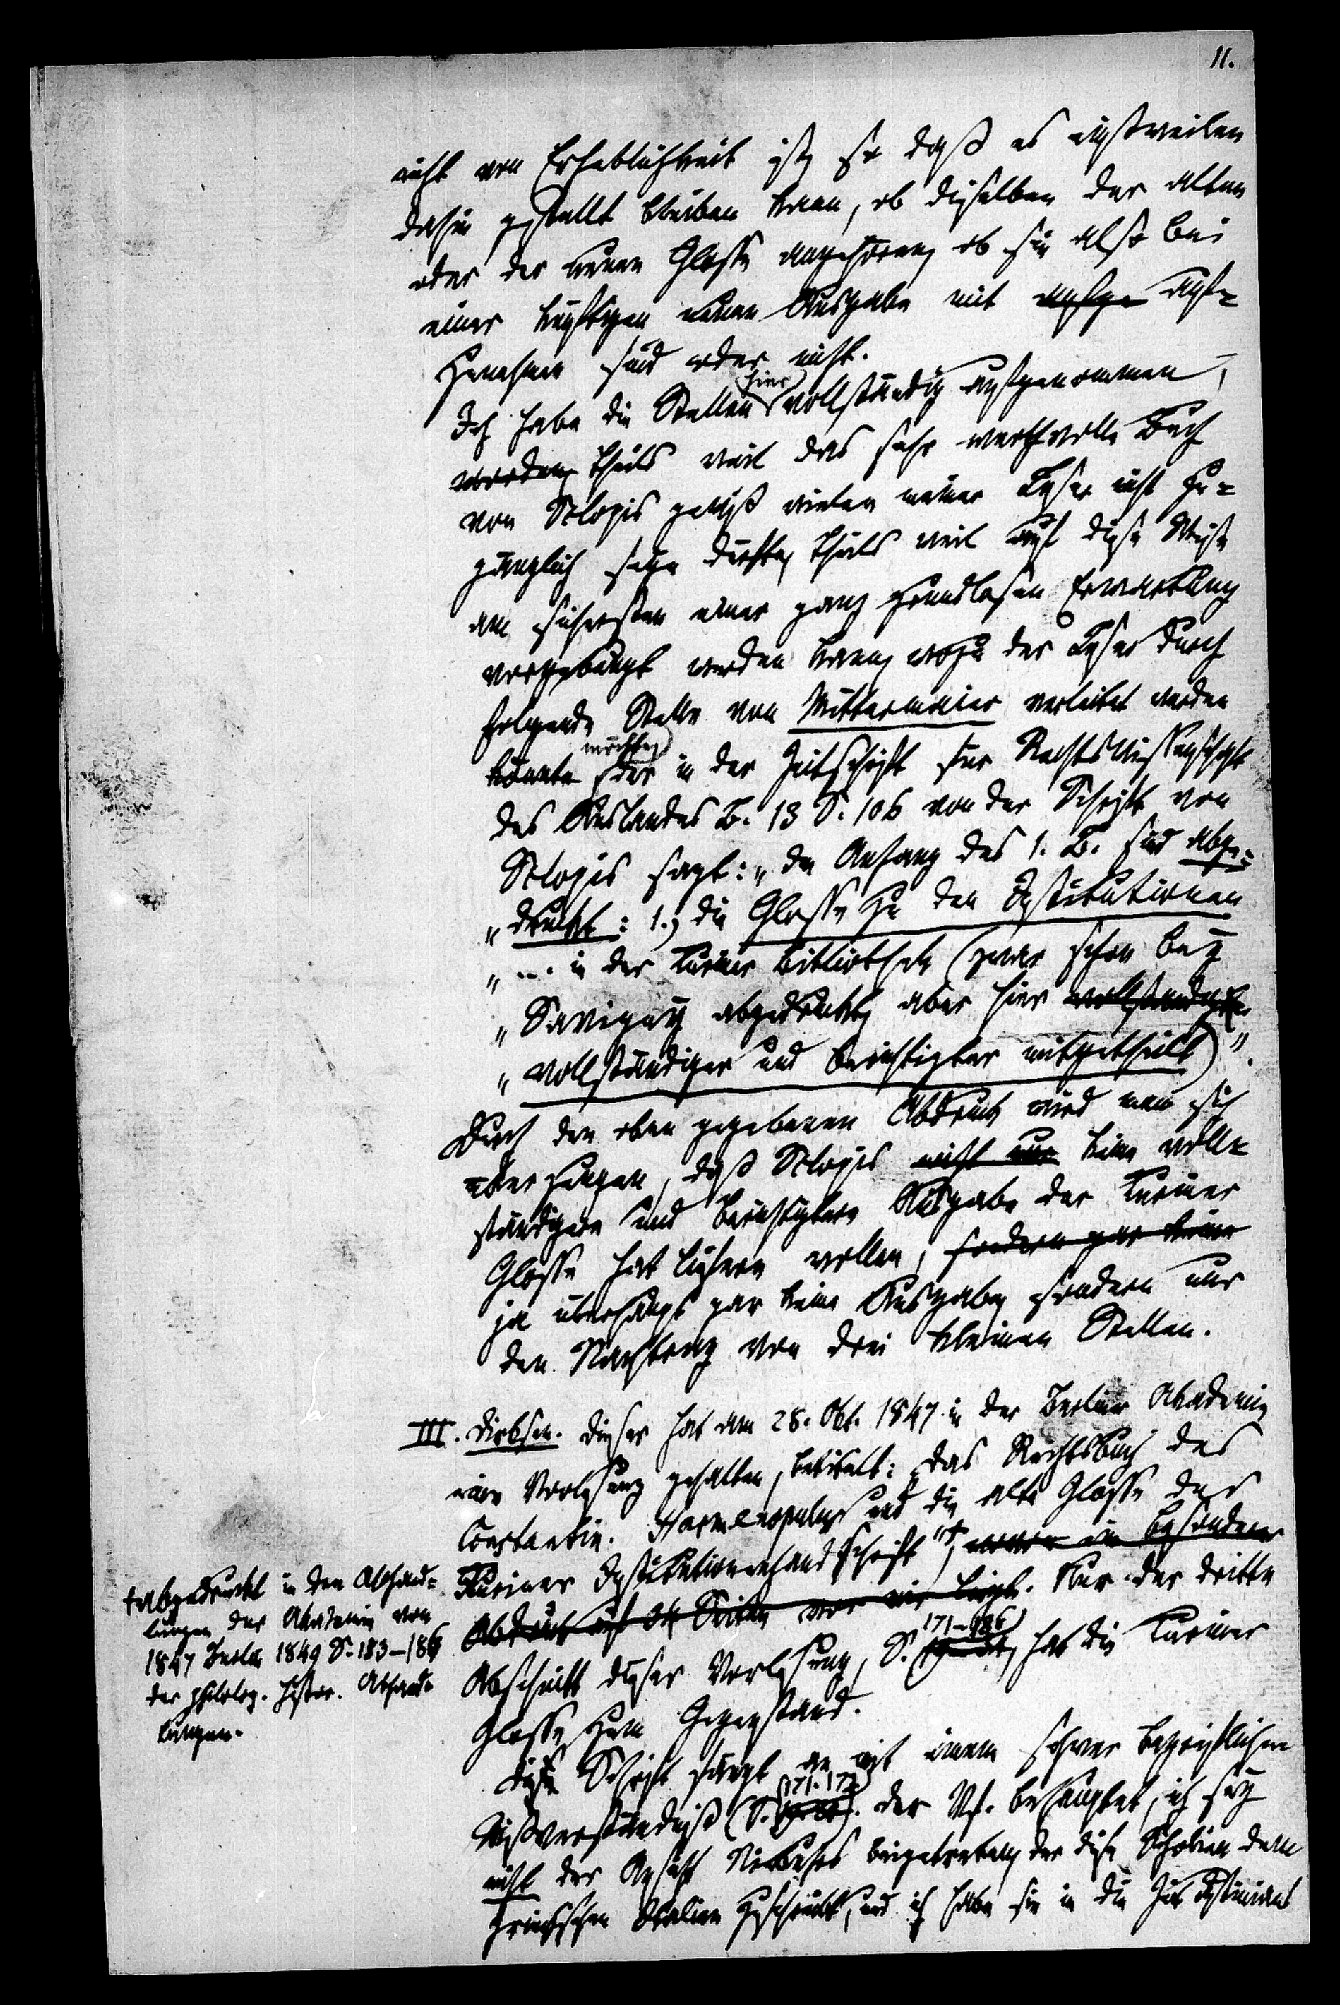 11.
nicht von Erheblichkeit ist, so daß es einstweilen
dahin gestellt bleiben kann, ob dieselben der alten
oder der neuen Glosse angehören, ob sie also bei
einer künftigen neuen Ausgabe mit aufzu aufzu=
nehmen sind oder nicht.
Ich habe die Stellen hier vollständig aufgenommen,
worden, theils weil das sehr werthvolle Buch
von Sclopis gewiß vielen meiner Leser nicht zu=
gänglich seyn dürfte, theils weil auf diese Weise
am sichersten einer ganz grundlosen Erwartung
vorgebeugt werden kann, wozu der Leser durch
folgende Stelle von Mittermaier verleitet werden
könnte möchte, der in der Zeitschrift für Rechtswissenschaft
des Auslandes B. 13 S. 106 von der Schrift von
Sclopis sagt: „Im Anhang des 1. B. sind abge=
„druckt: 1., die Glosse zu den Institutionen
„ ... in der Turiner Bibliothek (zwar schon bey
„Savigny abgedruckt, aber hier vollständiger
„vollständiger und berichtigter mitgetheilt)".
Durch den oben gegebenen Abdruck wird man sich
überzeugen, daß Sclopis nicht nur keine voll=
ständigere und berichtigtere Ausgabe der Turiner
Glosse hat liefern wollen, sondern gar keine
ja überhaupt gar keine Ausgabe, sondern nur
den Nachtrag von drei kleinen Stellen.
III. Dirksen. Dieser hat am 28. Okt. 1847 in der Berliner Akademie
eine Vorlesung gehalten, betitelt: „Das Rechtsbuch des
Constantin. Harmenopulus und die alte Glosse der
Turiner Institutionenhandschrift"+, wovon ein besonderer
Abdruck auf 34 Seiten vor mir liegt. Nur der dritte
Abschnitt dieser Vorlesung, S. 171–186, hat die Turiner
Glosse zum Gegenstand.
Diese Schrift fängt an mit einem schwer begreiflichen
Mißverständniß (S. 171. 172). Der Vf. behauptet, ich sey
nicht der Ansicht Niebuhrs beigetreten, der diese Scholien dem
griechischen Italien zuschreibt, und ich habe sie in die Zeit Justinians
+abgedruckt in den Abhand=
lungen der Akademie von
1847 Berlin 1849 S. 183–186
der philolog. histor. Abhand=
lungen.